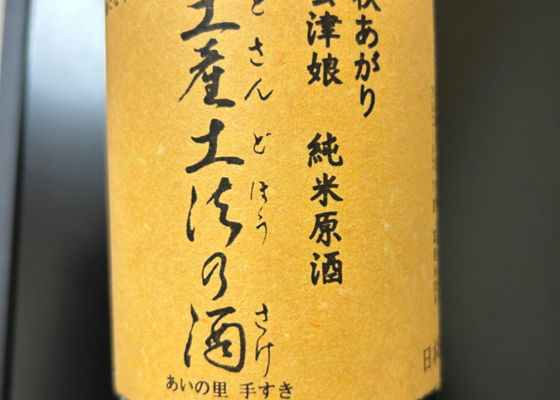 秋あがり
会津娘 純米原酒
どさんどほうさけ
土産土法の酒
あいの里 手すき